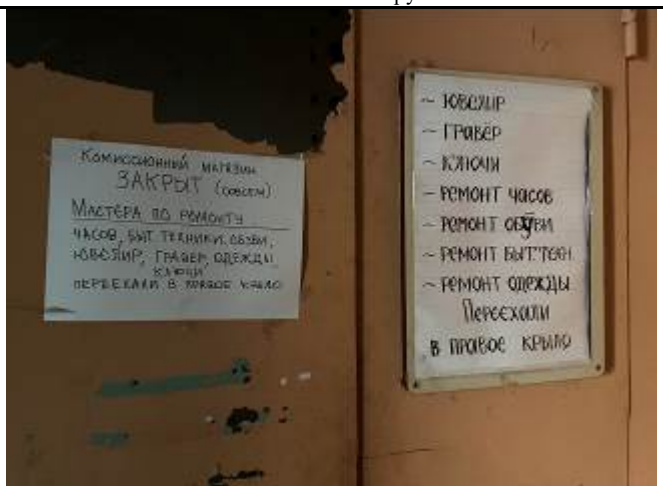 Комиссионный магазин
ЗАКРЫТ (совсем)
Мастера по ремонту
часов, быт.техники, обуви,
ювелир, гравер, одежды,
ключи
переехали в правое крыло
~ ювелир
~ гравёр
~ ключи
~ ремонт часов
~ ремонт обуви
~ ремонт быт.техн.
~ ремонт одежды
Переехали
в правое крыло